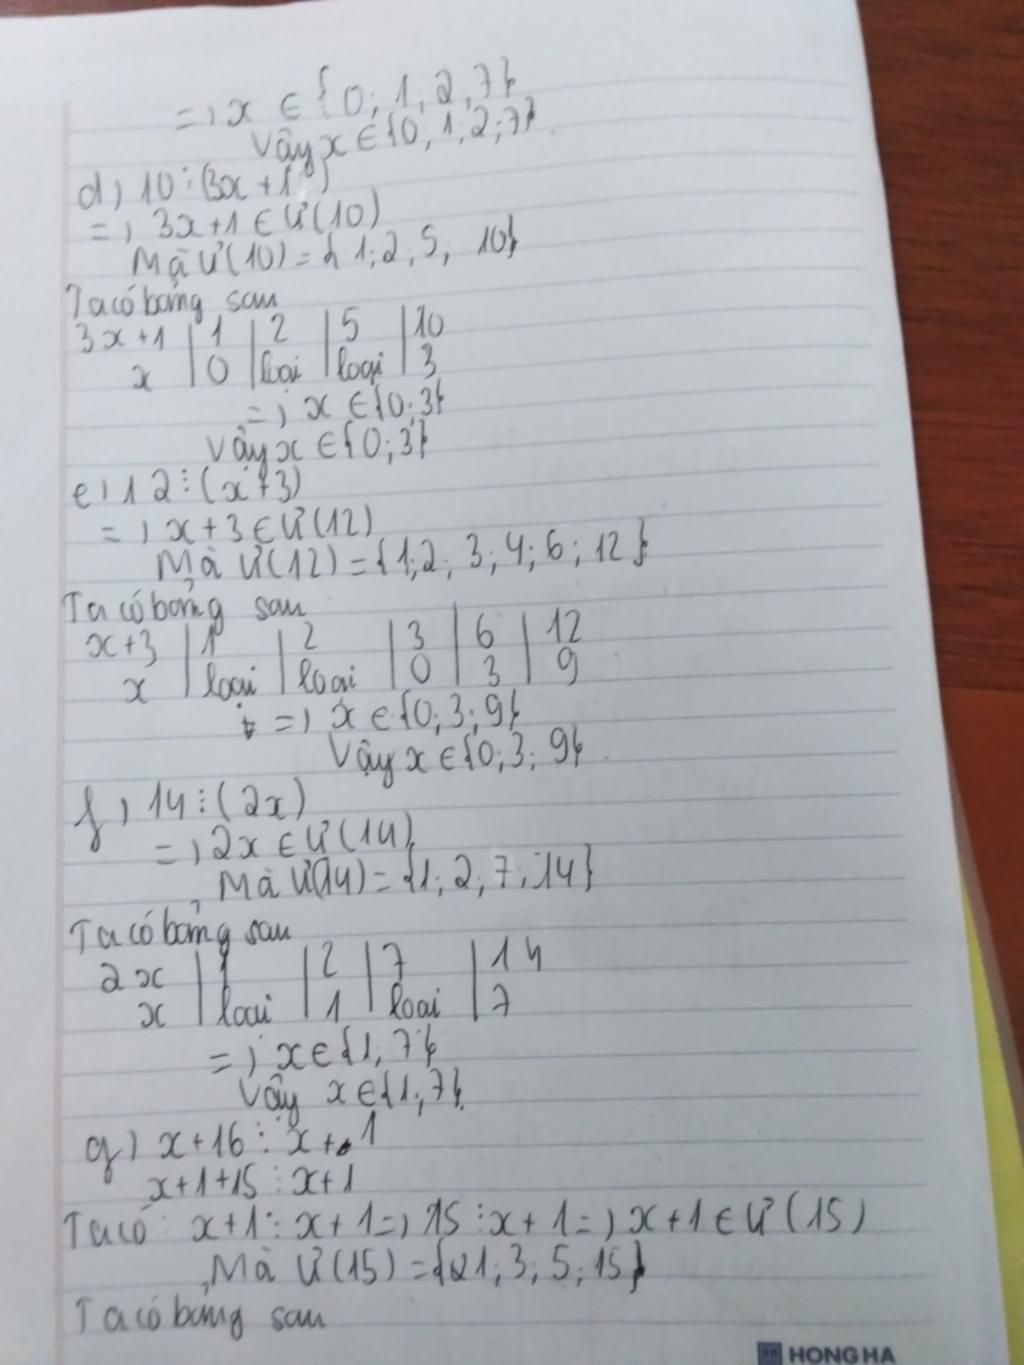 =) x ∈ {0; 1; 2; 7}
Vậy x ∈ {0; 1; 2; 7}
d) 10 ⋮ (3x + 1)
=) 3x+1 ∈ Ư(10)
Mà Ư(10) = {1; 2; 5; 10}
Ta có bảng sau
3x+1 | 1 | 2 | 5 | 10
x | 0 | loại | loại | 3
=) x ∈ {0; 3}
Vậy x ∈ {0; 3}
e) 12 ⋮ (x+3)
=) x+3 ∈ Ư(12)
Mà Ư(12) = {1; 2; 3; 4; 6; 12}
Ta có bảng sau
x+3 | 1 | 2 | 3 | 6 | 12
x | loại | loại | 0 | 3 | 9
=) x ∈ {0; 3; 9}
Vậy x ∈ {0; 3; 9}
f) 14 ⋮ (2x)
=) 2x ∈ Ư(14)
Mà Ư(14) = {1; 2; 7; 14}
Ta có bảng sau
2x | 1 | 2 | 7 | 14
x | loại | 1 | loại | 7
=) x ∈ {1; 7}
Vậy x ∈ {1; 7}
g) x+16 ⋮ x+1
x+1+15 ⋮ x+1
Ta có: x+1 ⋮ x+1 =) 15 ⋮ x+1 =) x+1 ∈ Ư(15)
Mà Ư(15) = {1; 3; 5; 15}
Ta có bảng sau
HONG HA